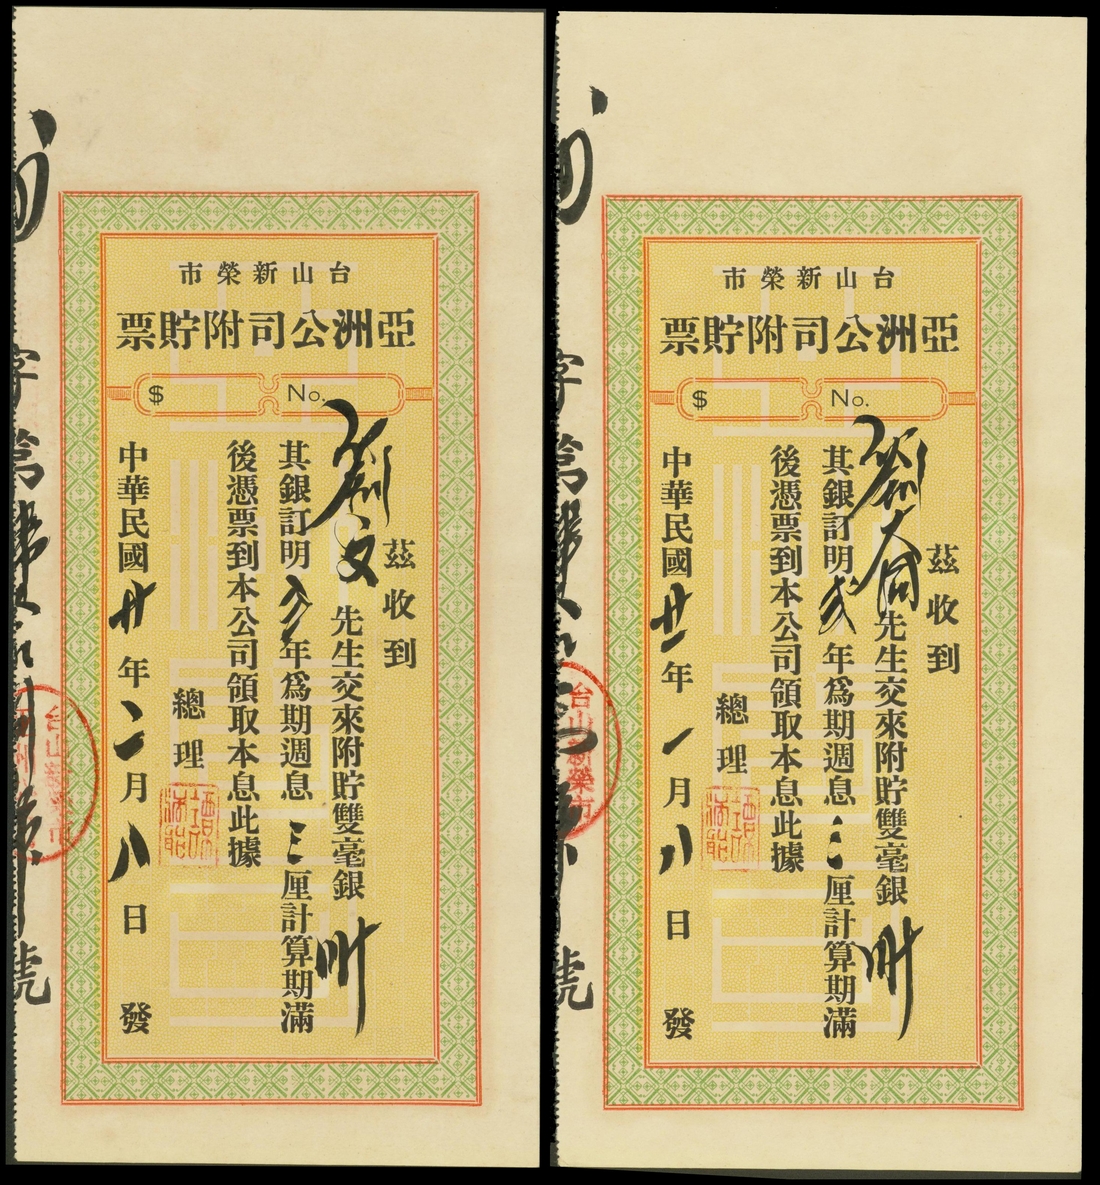 台山新榮市
亞洲公司附貯票
$ No.
茲收到
劉文先生交來附貯雙毫銀
其銀訂明年為期週息三厘計算期滿
後憑票到本公司領取本息此據
總理
中華民國廿年二月八日發
字第
號
台山新榮市
台山新榮市
亞洲公司附貯票
$ No.
茲收到
劉大同先生交來附貯雙毫銀
其銀訂明弍年為期週息三厘計算期滿
後憑票到本公司領取本息此據
總理
中華民國廿一年一月八日發
字第
號
台山新榮市